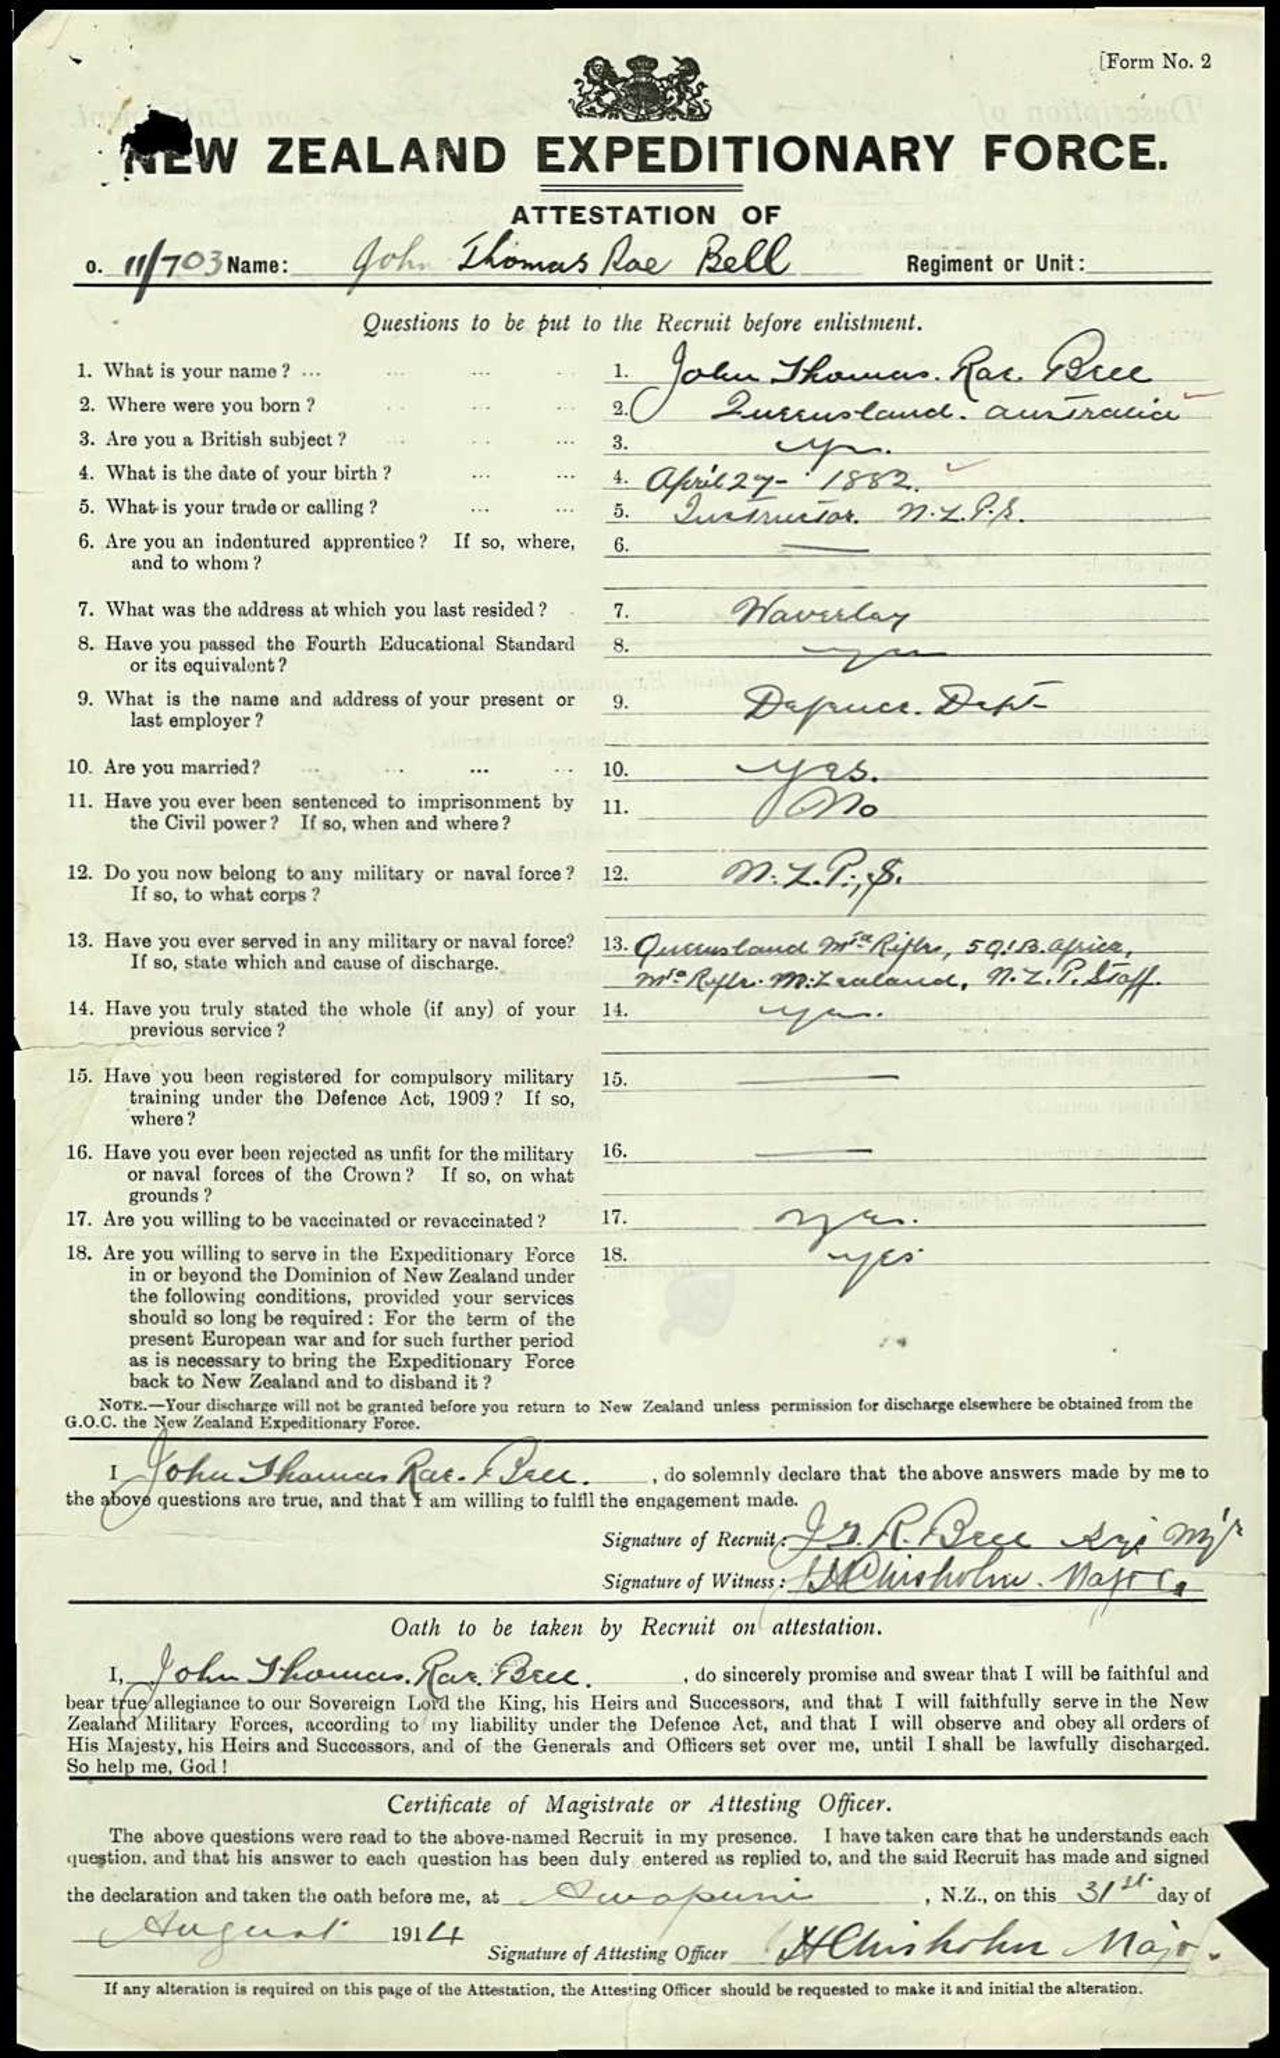 [Form No. 2
NEW ZEALAND EXPEDITIONARY FORCE.
ATTESTATION OF
o. 11/703 Name: John Thomas Rae Bell Regiment or Unit:
Questions to be put to the Recruit before enlistment.
1. What is your name? ... 1. John Thomas. Rae. Bell
2. Where were you born? 2. Queensland. Australia
3. Are you a British subject? 3. yes.
4. What is the date of your birth? 4. April 27- 1882.
5. What is your trade or calling? 5. Instructor. N.Z.P.S.
6. Are you an indentured apprentice? If so, where, 6. —
and to whom?
7. What was the address at which you last resided? 7. Waverley
8. Have you passed the Fourth Educational Standard 8. yes
or its equivalent?
9. What is the name and address of your present or 9. Defence. Dept-
last employer?
10. Are you married? 10. yes.
11. Have you ever been sentenced to imprisonment by 11. No
the Civil power? If so, when and where?
12. Do you now belong to any military or naval force? 12. N.Z.P.S.
If so, to what corps?
13. Have you ever served in any military or naval force? 13. Queensland Mtd Rifles, 5 Q.I.B. Africa,
If so, state which and cause of discharge. Mtd Rifles. N.Zealand, N.Z.P. Staff.
14. Have you truly stated the whole (if any) of your 14. yes.
previous service?
15. Have you been registered for compulsory military 15. —
training under the Defence Act, 1909? If so,
where?
16. Have you ever been rejected as unfit for the military 16. —
or naval forces of the Crown? If so, on what
grounds?
17. Are you willing to be vaccinated or revaccinated? 17. yes.
18. Are you willing to serve in the Expeditionary Force 18. yes
in or beyond the Dominion of New Zealand under
the following conditions, provided your services
should so long be required: For the term of the
present European war and for such further period
as is necessary to bring the Expeditionary Force
back to New Zealand and to disband it?
NOTE.—Your discharge will not be granted before you return to New Zealand unless permission for discharge elsewhere be obtained from the
G.O.C. the New Zealand Expeditionary Force.
I John Thomas Rae. Bell. , do solemnly declare that the above answers made by me to
the above questions are true, and that I am willing to fulfil the engagement made.
Signature of Recruit: J.T.R. Bell Sgt Mjr
Signature of Witness: H Chisholm. Major.
Oath to be taken by Recruit on attestation.
I, John Thomas. Rae. Bell. , do sincerely promise and swear that I will be faithful and
bear true allegiance to our Sovereign Lord the King, his Heirs and Successors, and that I will faithfully serve in the New
Zealand Military Forces, according to my liability under the Defence Act, and that I will observe and obey all orders of
His Majesty, his Heirs and Successors, and of the Generals and Officers set over me, until I shall be lawfully discharged.
So help me, God!
Certificate of Magistrate or Attesting Officer.
The above questions were read to the above-named Recruit in my presence. I have taken care that he understands each
question, and that his answer to each question has been duly entered as replied to, and the said Recruit has made and signed
the declaration and taken the oath before me, at Awapuni , N.Z., on this 31st day of
August 1914
Signature of Attesting Officer H Chisholm Major.
If any alteration is required on this page of the Attestation, the Attesting Officer should be requested to make it and initial the alteration.